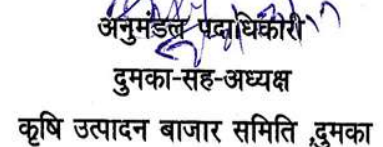 अनुमंडल पदाधिकारी
दुमका-सह-अध्यक्ष
कृषि उत्पादन बाजार समिति ,दुमका